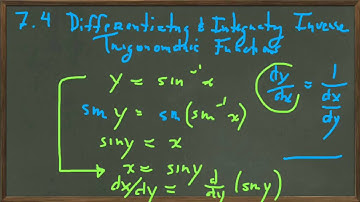 7.4 Differentiating & Integrating Inverse
Trigonometric Functions
y = sin⁻¹x
sin y = sin(sin⁻¹x)
sin y = x
x = sin y
dx/dy = d/dy (sin y)
dy/dx = 1/(dx/dy)